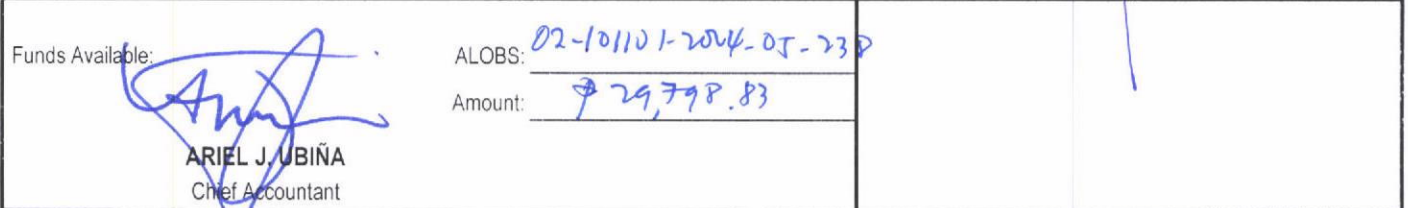 Funds Available:
ALOBS: 02-101101-2024-05-238
Amount: ₱ 29,798.83
ARIEL J. UBIÑA
Chief Accountant